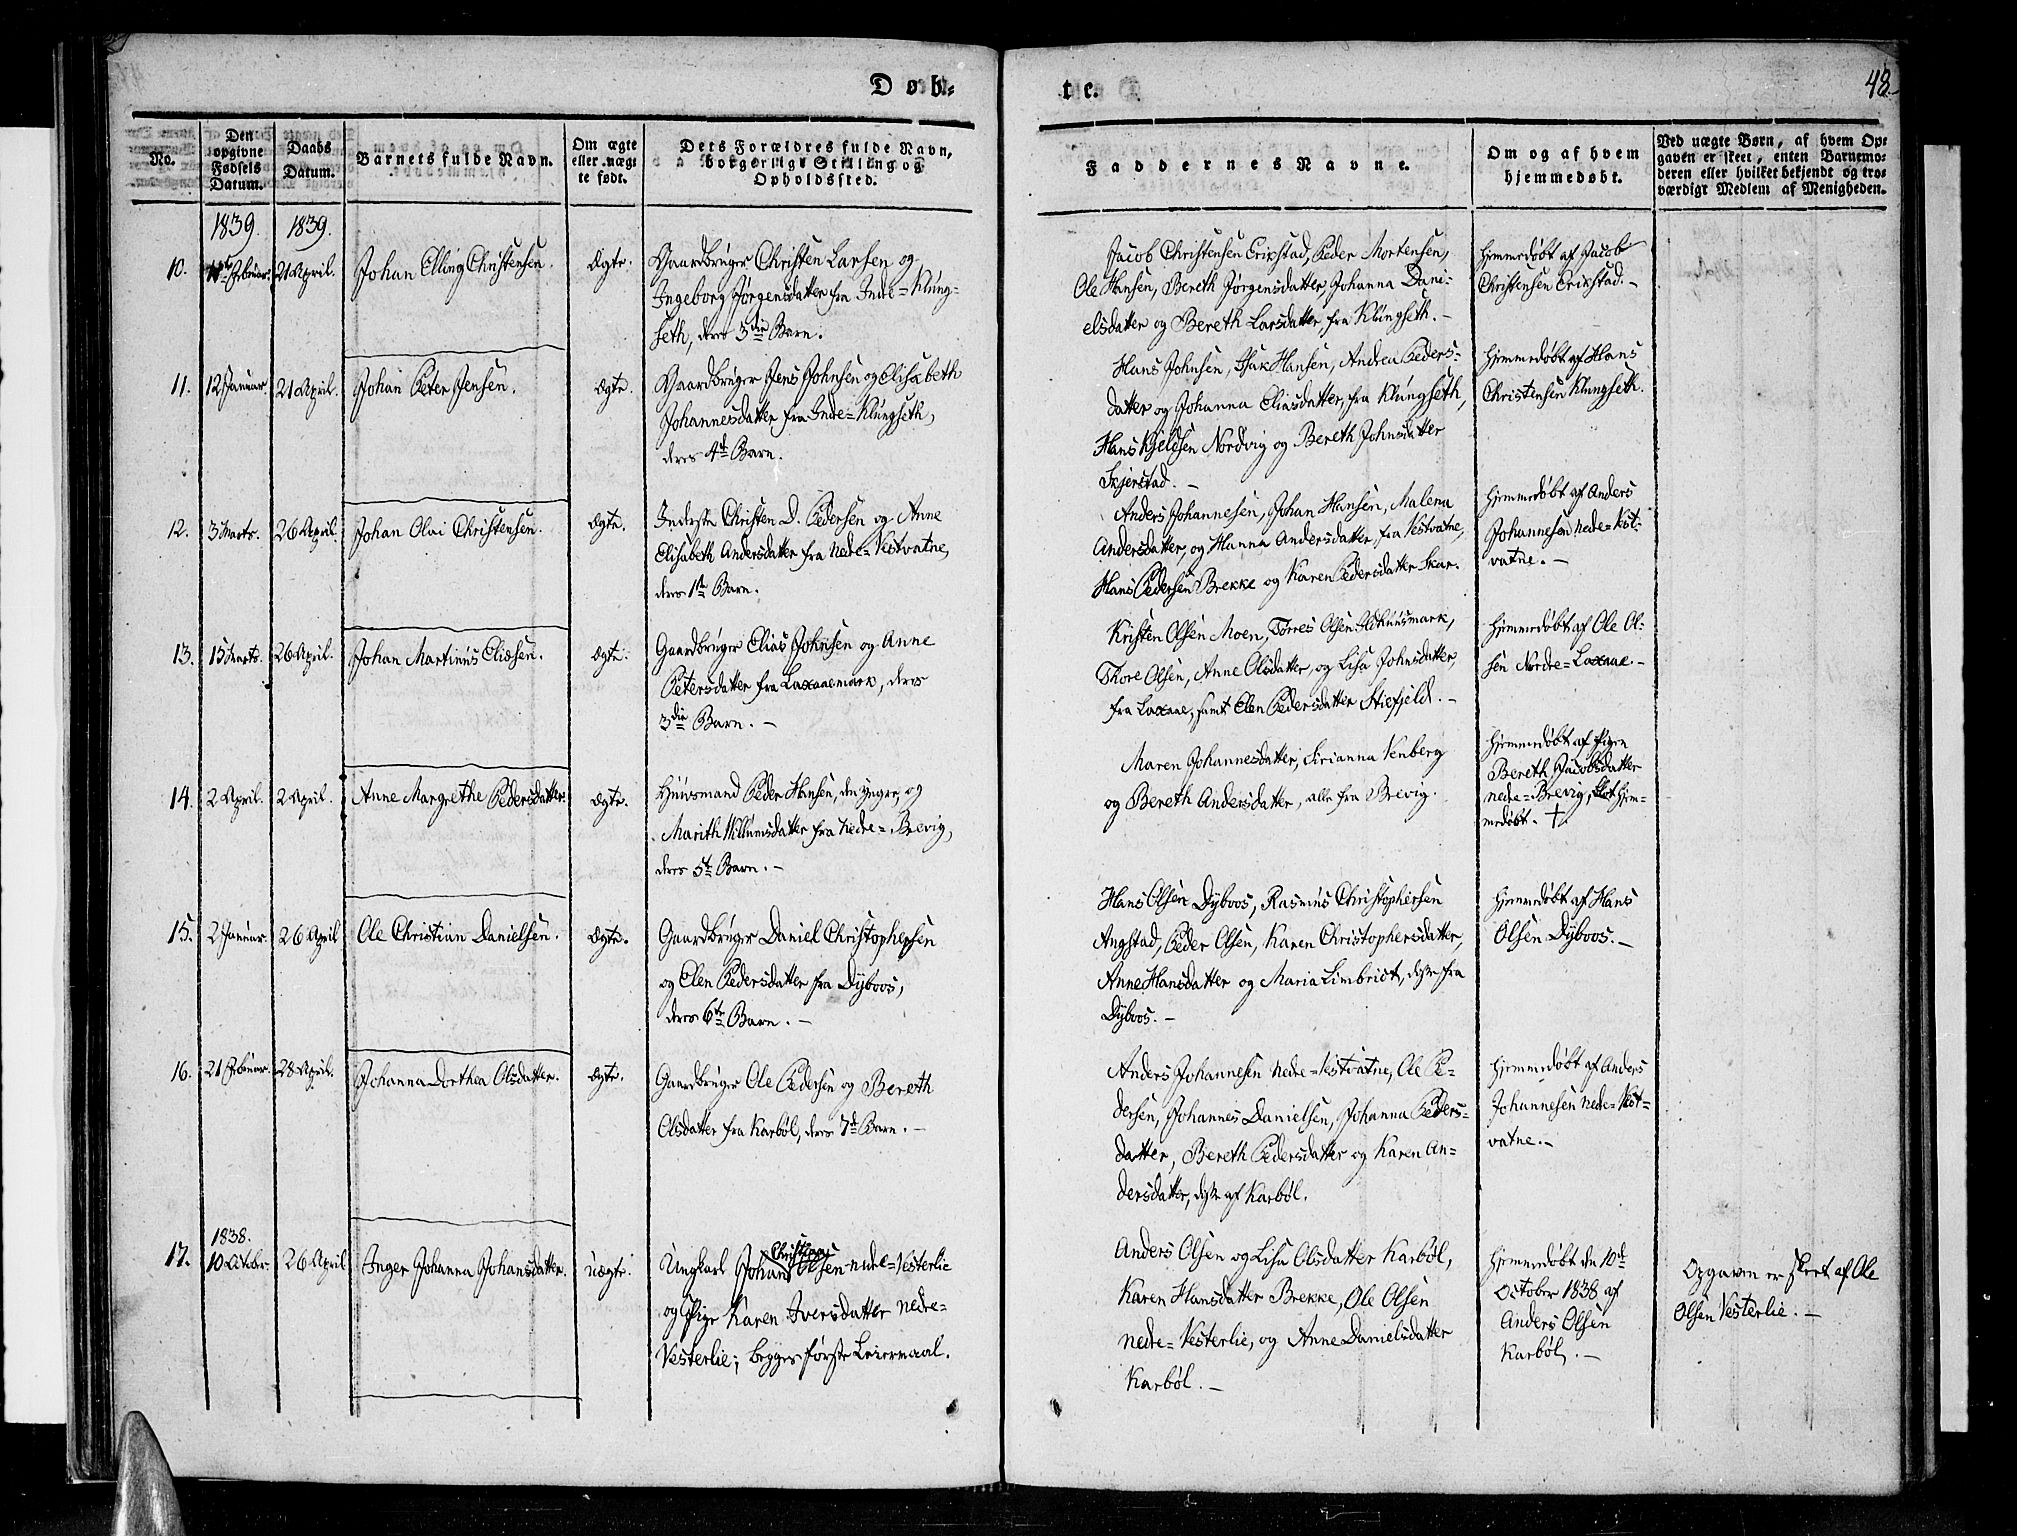 Døb-
te.
48
No.
Den
opgivne
Fødsels
Datum.
Daabs
Datum.
Barnets fulde Navn.
Om ægte
eller uægt
te født.
Dets Forældres fulde Navn,
borgerlige Stilling og
Opholdssted.
Faddernes Navne.
Om og af hvem
hjemmedøbt.
Ved uægte Børn, af hvem Op-
gaven er skeet, enten Barnemo-
deren eller hvilket bekjendt og tro-
værdigt Medlem af Menigheden.
1839.
1839.
10.
Februar.
21 April.
Johan Elling Christensen.
Ægte.
Gaardbruger Christen Larsen og
Ingeborg Jørgensdatter fra Inde=Klung-
seth, deres 3die Barn.
Jacob Christensen Erikstad, Peder Mortensen,
Ole Hansen, Bereth Jørgensdatter, Johanna Dani-
elsdatter og Bereth Larsdatter, fra Klungseth.-
Hjemmedøbt af Jacob
Christensen Erikstad.-
11.
12 Januar.
21 April.
Johan Peter Jensen.
Ægte.
Gaardbruger Jens Johnsen og Elisabeth
Johannesdatter fra Inde=Klungseth,
deres 4de Barn.
Hans Johnsen, Isak Hansen, Andrea Peders-
datter og Johanna Eliasdatter, fra Klungseth,
Hans Kjeldsen Nordvig og Bereth Johnsdatter
Skjerstad.-
Hjemmedøbt af Hans
Christensen Klungseth.
12.
3 Marts.
26 April.
Johan Olai Christensen.
Ægte.
Inderste Christen D. Pedersen og Anne
Elisabeth Andersdatter fra Nede=Vestvatne,
deres 1ste Barn.
Anders Johannesen, Johan Hansen, Malena
Andersdatter, og Hanna Andersdatter, fra Vestvatne,
Hans Pedersen Brekke og Karen Pedersdatter Skar.
Hjemmedøbt af Anders
Johannesen Nede=Vest-
vatne.-
13.
15 Marts.
26 April.
Johan Martinus Eliesen.
Ægte.
Gaardbruger Elias Johnsen og Anne
Petersdatter fra Laxaaemark, deres
3die Barn.-
Kristen Olsen Moen, Torres Olsen
Thore Olsen, Anne Olsdatter, og Lisa Johnsdatter,
fra Laxaae, samt Elen Pedersdatter Stiefjeld.-
Hjemmedøbt af Ole Ol-
sen Nordre=Laxaae.-
14.
2 April.
2 April.
Anne Margrethe Pedersdatter.
Ægte.
Huusmand Peder Hansen, den yngre, og
Marith Willumsdatter fra Nedre=Brevig,
deres 5te Barn.-
Maren Johannesdatter, Sirianna Venberg
og Bereth Andersdatter, alle fra Brevig.
Hjemmedøbt af Pigen
Bereth Jacobsdatter
Nede=Brevig, blot hjem-
medøbt. +
15.
2 Januar.
26 April
Ole Christian Danielsen.
Ægte.
Gaardbruger Daniel Christophersen
og Elen Pedersdatter fra Dybvos,
deres 6te Barn.-
Hans Olsen Dybvos, Rasmus Christophersen
Angstad, Peder Olsen, Karen Christophersdatter,
Anne Hansdatter og Maria Limbridt, disse fra
Dybvos.-
Hjemmedøbt af Hans
Olsen Dybvos.-
16.
21 Februar.
28 April.
Johanna Dorthea Olsdatter.
Ægte.
Gaardbruger Ole Pedersen og Bereth
Olsdatter fra Karbøl, deres 7de Barn.-
Anders Johannesen Nedre=Vestvatne, Ole Pe-
dersen, Johannes Danielsen, Johanna Peders-
datter, Bereth Pedersdatter og Karen An-
dersdatter, disse af Karbøl.
Hjemmedøbt af Anders
Johannesen Nede=Vest-
vatne.-
17.
1838.
10 October.
26 April
Inger Johanna Johansdatter.
Uægte.
Christian
Ungkarl Johan Olsen Nede=Vesterlie
og Pige Karen Iversdatter Nedre=
Vesterlie; begges første Leiermaal.
Anders Olsen og Lisa Olsdatter Karbøl,
Karen Hansdatter Brekke, Ole Olsen
Nedre=Vesterlie, og Anne Danielsdatter
Karbøl.-
Hjemmedøbt den 10de
October 1838 af
Anders Olsen
Karbøl.-
Opgaven er skeet af Ole
Olsen Vesterlie.-